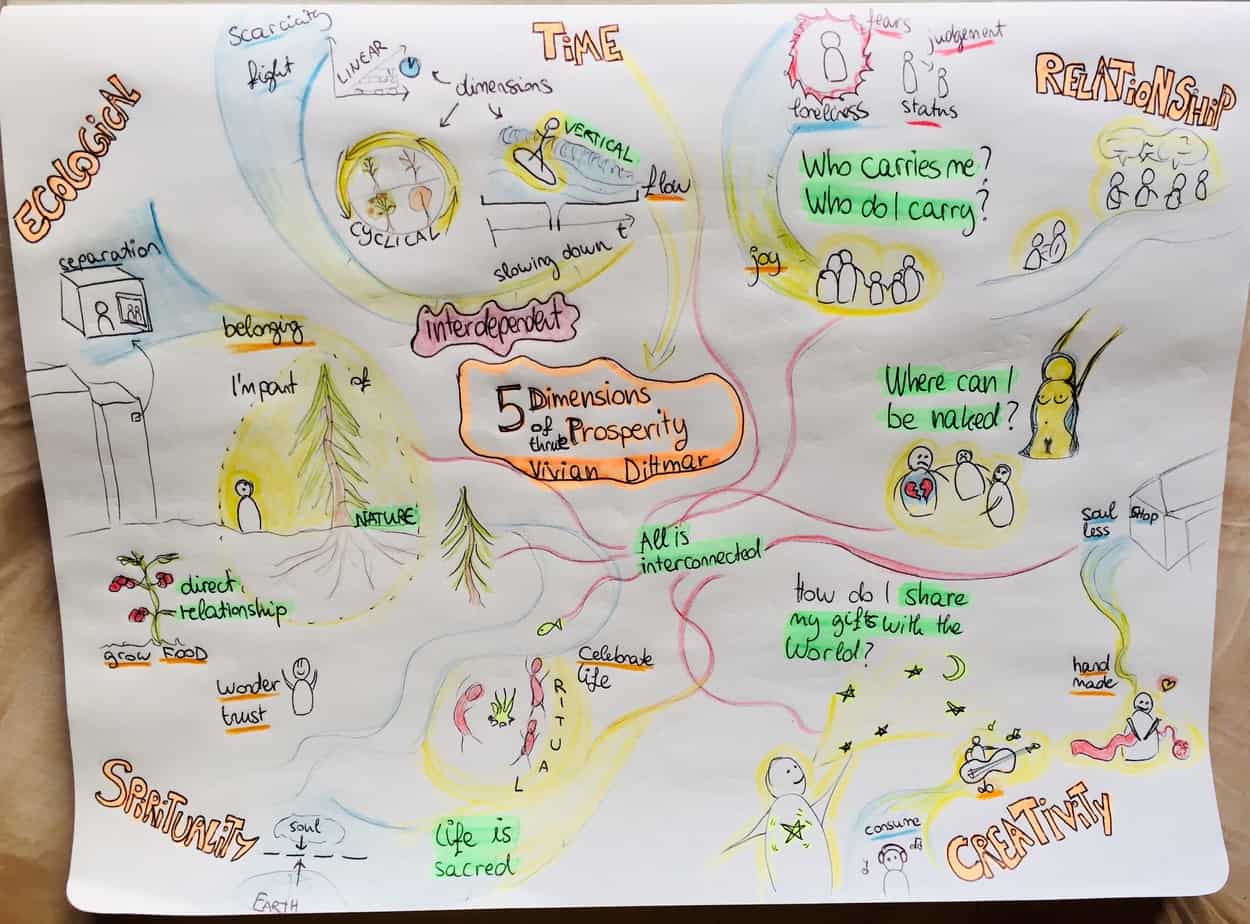 Scarcicity
fight
LINEAR
dimensions
TIME
VERTICAL
flow
CYCLICAL
slowing down
t
fears
judgement
loneliness
status
RELATIONSHIP
Who carries me?
Who do I carry?
joy
ECOLOGICAL
separation
belonging
I'm part of
NATURE
interdependent
5 Dimensions
of true Prosperity
Vivian Dittmar
Where can I
be naked?
All is
interconnected
soul
less
SHOP
direct
relationship
grow FOOD
wonder
trust
Celebrate
life
RITUAL
How do I share
my gifts with the
World?
hand
made
SPIRITUALITY
soul
EARTH
Life is
sacred
consume
do
CREATIVITY